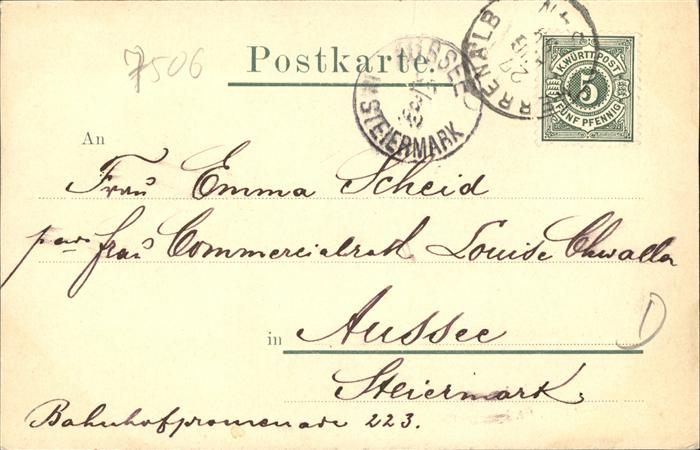 7506
Postkarte.
HERRENALB
AUSSEE
STEIERMARK
K. WÜRTT. POST
5
FÜNF PFENNIG
An
Frau Emma Scheid
per Frau Commercialrath Louise Chwalla
in Aussee
Steiermark,
Bahnhofpromenade 223.